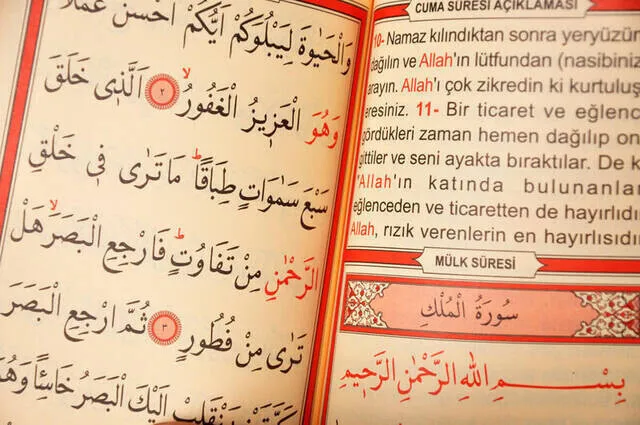 CUMA SÛRESİ AÇIKLAMASI
10- Namaz kılındıktan sonra yeryüzün
dağılın ve Allah'ın lütfundan (nasibiniz
arayın. Allah'ı çok zikredin ki kurtuluş
eresiniz. 11- Bir ticaret ve eğlenc
gördükleri zaman hemen dağılıp on
gittiler ve seni ayakta bıraktılar. De k
"Allah'ın katında bulunanla
eğlenceden ve ticaretten de hayırlıdı
Allah, rızık verenlerin en hayırlısıdır
MÜLK SÛRESİ
سُورَةُ الْمُلْكِ
بِسْمِ اللهِ الرَّحْمٰنِ الرَّحِيمِ
وَالْحَيٰوةَ لِيَبْلُوَكُمْ اَيُّكُمْ اَحْسَنُ عَمَلًا
وَهُوَ الْعَزِيزُ الْغَفُورُۙ ﴿٢﴾ اَلَّذِي خَلَقَ
سَبْعَ سَمٰوَاتٍ طِبَاقًاۜ مَا تَرٰى فِي خَلْقِ
الرَّحْمٰنِ مِنْ تَفَاوُتٍۜ فَارْجِعِ الْبَصَرَۙ هَلْ
تَرٰى مِنْ فُطُورٍ ﴿٣﴾ ثُمَّ ارْجِعِ الْبَصَرَ
كَرَّتَيْنِ يَنْقَلِبْ اِلَيْكَ الْبَصَرُ خَاسِئًا وَهُوَ